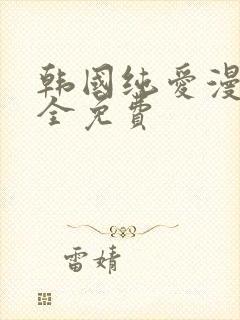 韩国纯爱漫
全免费
雷婧